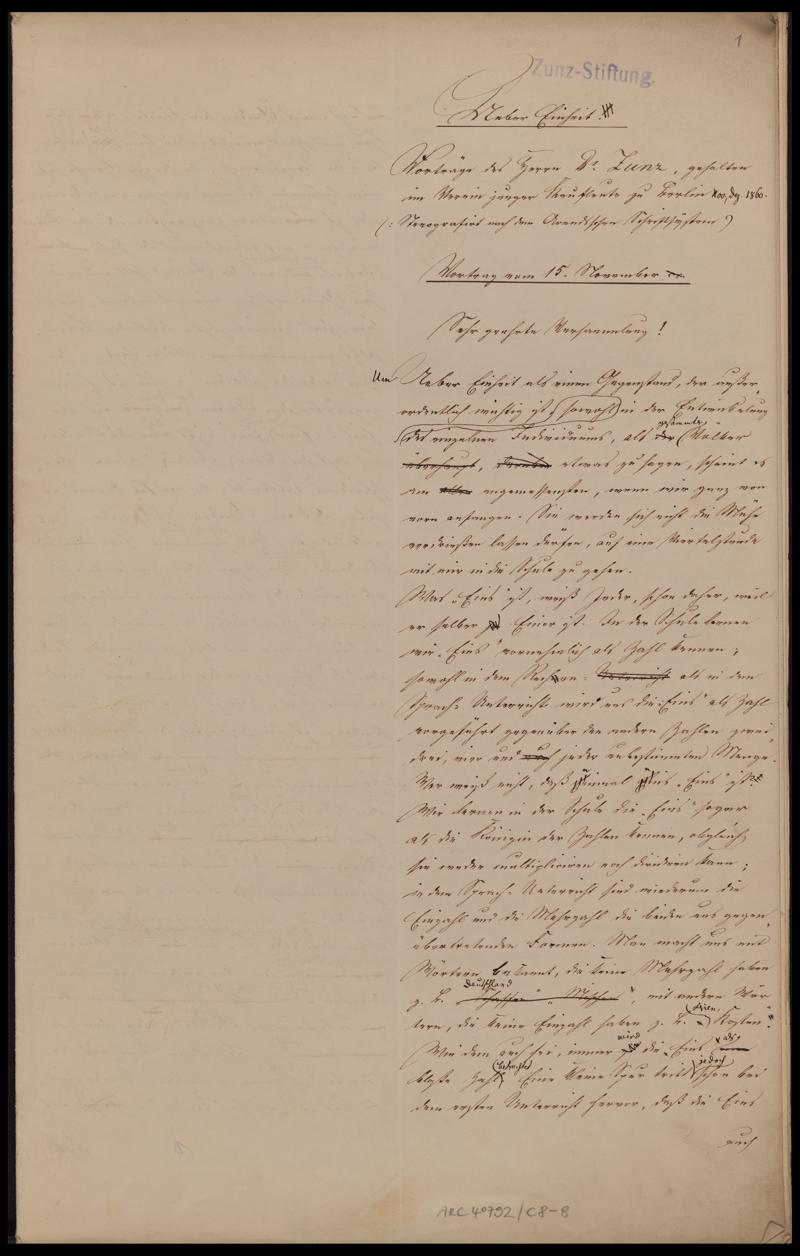 1
Zunz-Stiftung.
Ueber Einheit.
Vorträge des Herrn Dr. Zunz, gehalten
im Verein junger Kaufleute zu Berlin Nov, Dez. 1860.
(: Stenografirt nach dem Arends'schen Schriftsystem)
Vortrag vom 15. November
Sehr geehrte Versammlung!
Um Ueber Einheit als einen Gegenstand, der außer-
ordentlich wichtig ist, sowohl in der Entwickelung
des einzelnen Individuums, als der gesammten Völker
überhaupt, etwas zu sagen, scheint es
am angemessensten, wenn wir ganz von
vorn anfangen. Sie werden sich nicht die Mühe
verdrießen lassen dürfen, auf eine Viertelstunde
mit mir in die Schule zu gehen.
Was „Eins" ist, weiß Jeder, schon daher, weil
er selber Einer ist. In der Schule lernen
wir „Eins" vornehmlich als Zahl kennen;
sowohl in dem Rechnen- Unterricht als in dem
Sprach-Unterricht wird uns die „Eins" als Zahl
vorgeführt gegenüber den andern Zahlen zwei,
drei, vier und jeder unbestimmten Menge.
Wer weiß nicht, daß einmal eins „Eins" ist?
Wir lernen in der Schule die „Eins" sogar
als die Königin der Zahlen kennen, obgleich
sie weder multipliciren noch dividiren kann;
in dem Sprach-Unterricht sind wiederum die
Einzahl und die Mehrzahl die beiden uns gegen-
übertretenden Formen. Man macht uns mit
Wörtern bekannt, die keine Mehrzahl haben
z. B. Deutschland, mit andern Wör-
tern, die keine Einzahl haben z. B. Kosten."
Wie dem auch sei, immer wird die „Eins" als
bloße Zahl betrachtet. Eine kleine Spur tritt jedoch schon bei
dem ersten Unterricht hervor, daß die Eins
auch
ARC 4°792/C8-8